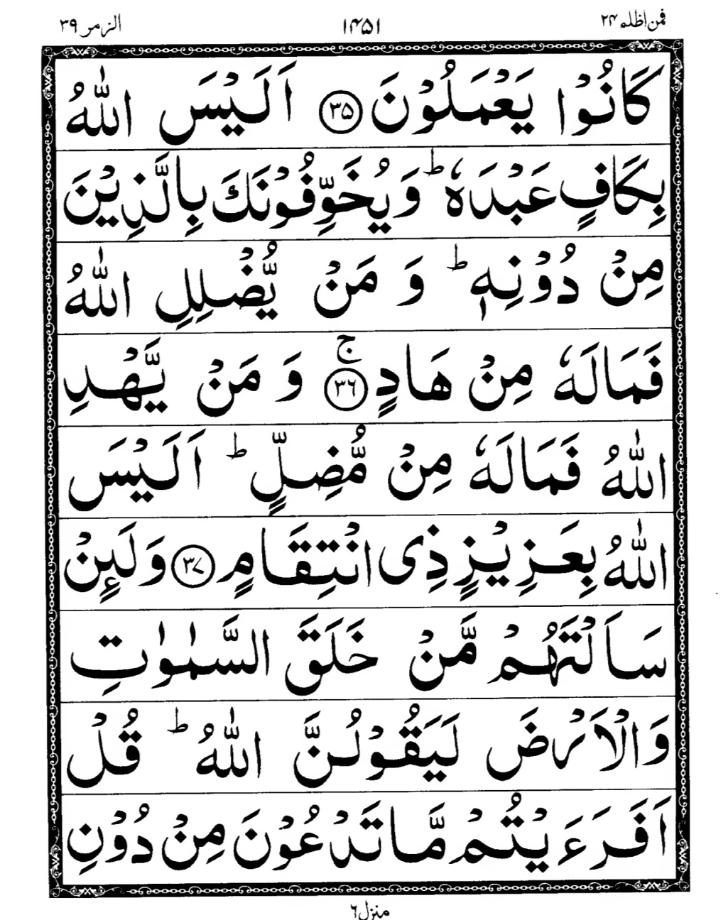 فمن اظلم ۲۴
۱۴۵۱
الزمر ۳۹
كَانُوْا يَعْمَلُوْنَ ۝۳۵ اَلَيْسَ اللّٰهُ
بِكَافٍ عَبْدَهٗ ؕ وَيُخَوِّفُوْنَكَ بِالَّذِيْنَ
مِنْ دُوْنِهٖ ؕ وَ مَنْ يُّضْلِلِ اللّٰهُ
فَمَالَهٗ مِنْ هَادٍ ۝۳۶ ۚ وَ مَنْ يَّهْدِ
اللّٰهُ فَمَالَهٗ مِنْ مُّضِلٍّ ؕ اَلَيْسَ
اللّٰهُ بِعَزِيْزٍ ذِى انْتِقَامٍ ۝۳۷ وَلَئِنْ
سَاَلْتَهُمْ مَّنْ خَلَقَ السَّمٰوٰتِ
وَالْاَرْضَ لَيَقُوْلُنَّ اللّٰهُ ؕ قُلْ
اَفَرَءَيْتُمْ مَّا تَدْعُوْنَ مِنْ دُوْنِ
منزل ۶